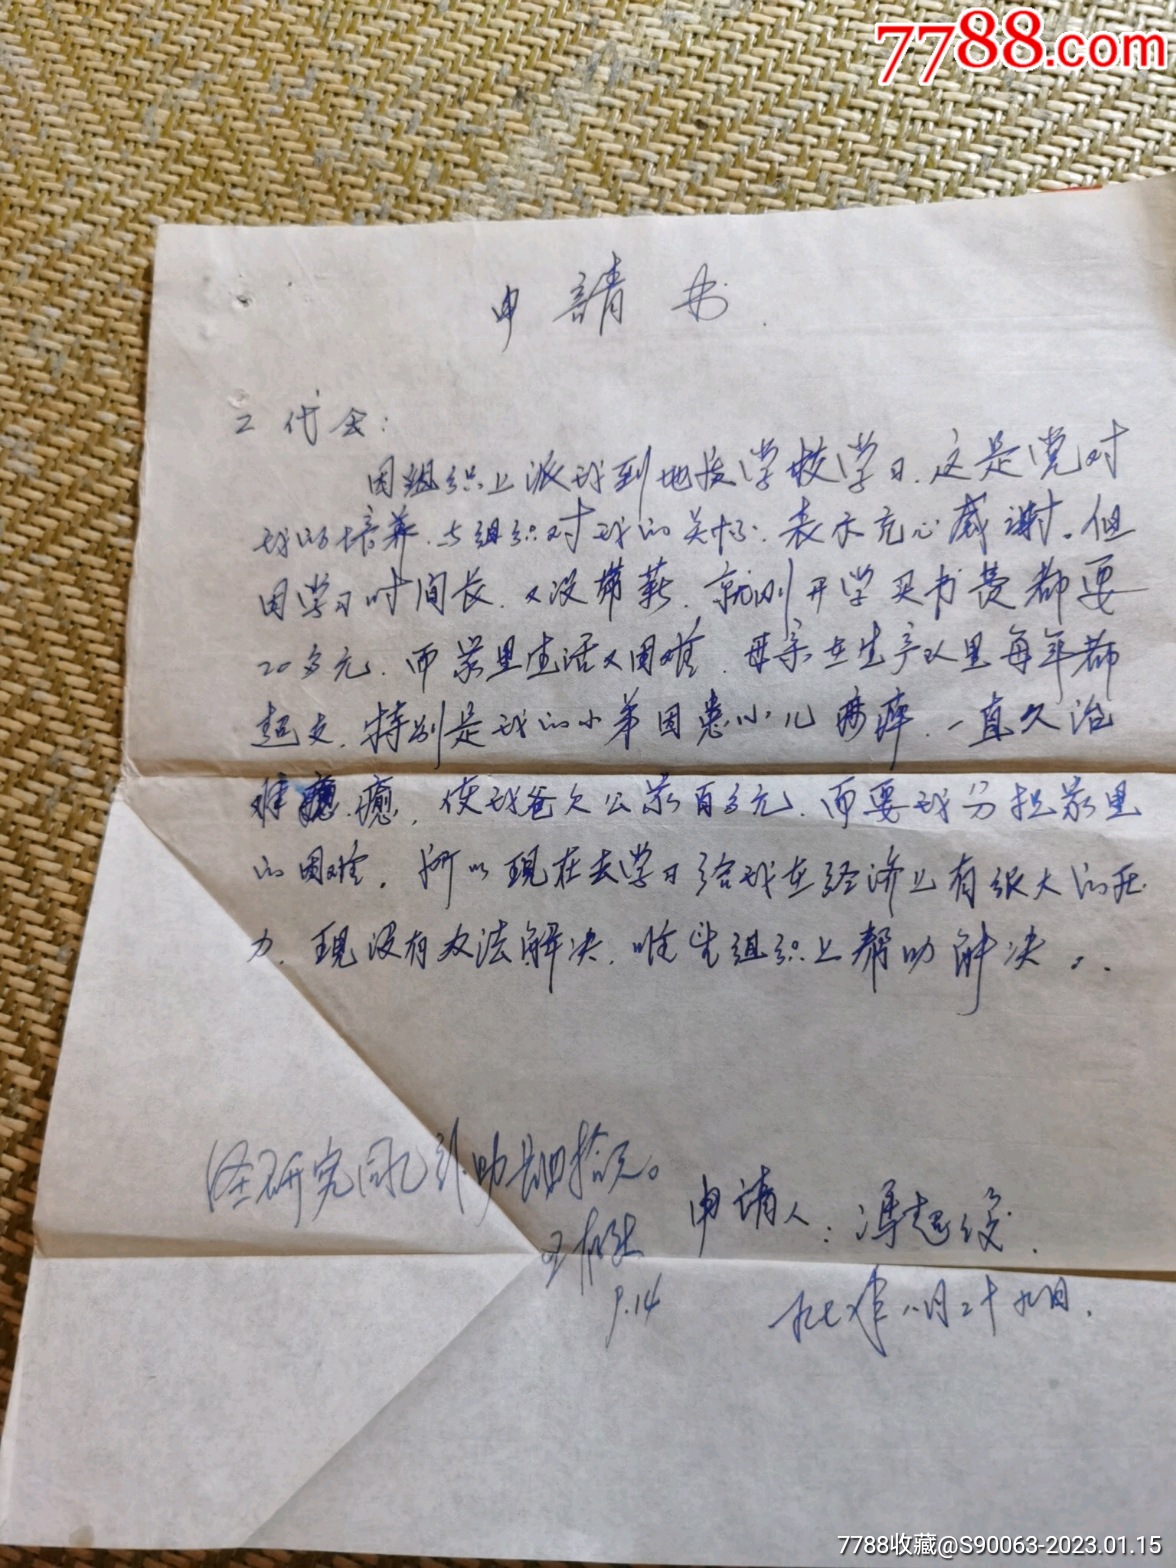 7788.com
申請书
工代会:
因组织上派我到地技学校学习.这是党对
我的培养.与组织对我的关怀.表示充心感谢。但
因学习时间长.又没带薪.就刚开学买书费都要
20多元.而家里生活又困难.母亲在生产队里每年都
超支.特别是我的小弟因患小儿麻痹.一直久治
难癒.使我爸欠公家百多元.而要我分担家里
的困难.所以现在去学习给我在经济上有很大的压
力.现没有办法解决.唯望组织上帮助解决。
经研究同礼补助 四拾元。
申请人:冯起
9.14
八月二十九日.
7788收藏@S90063-2023.01.15